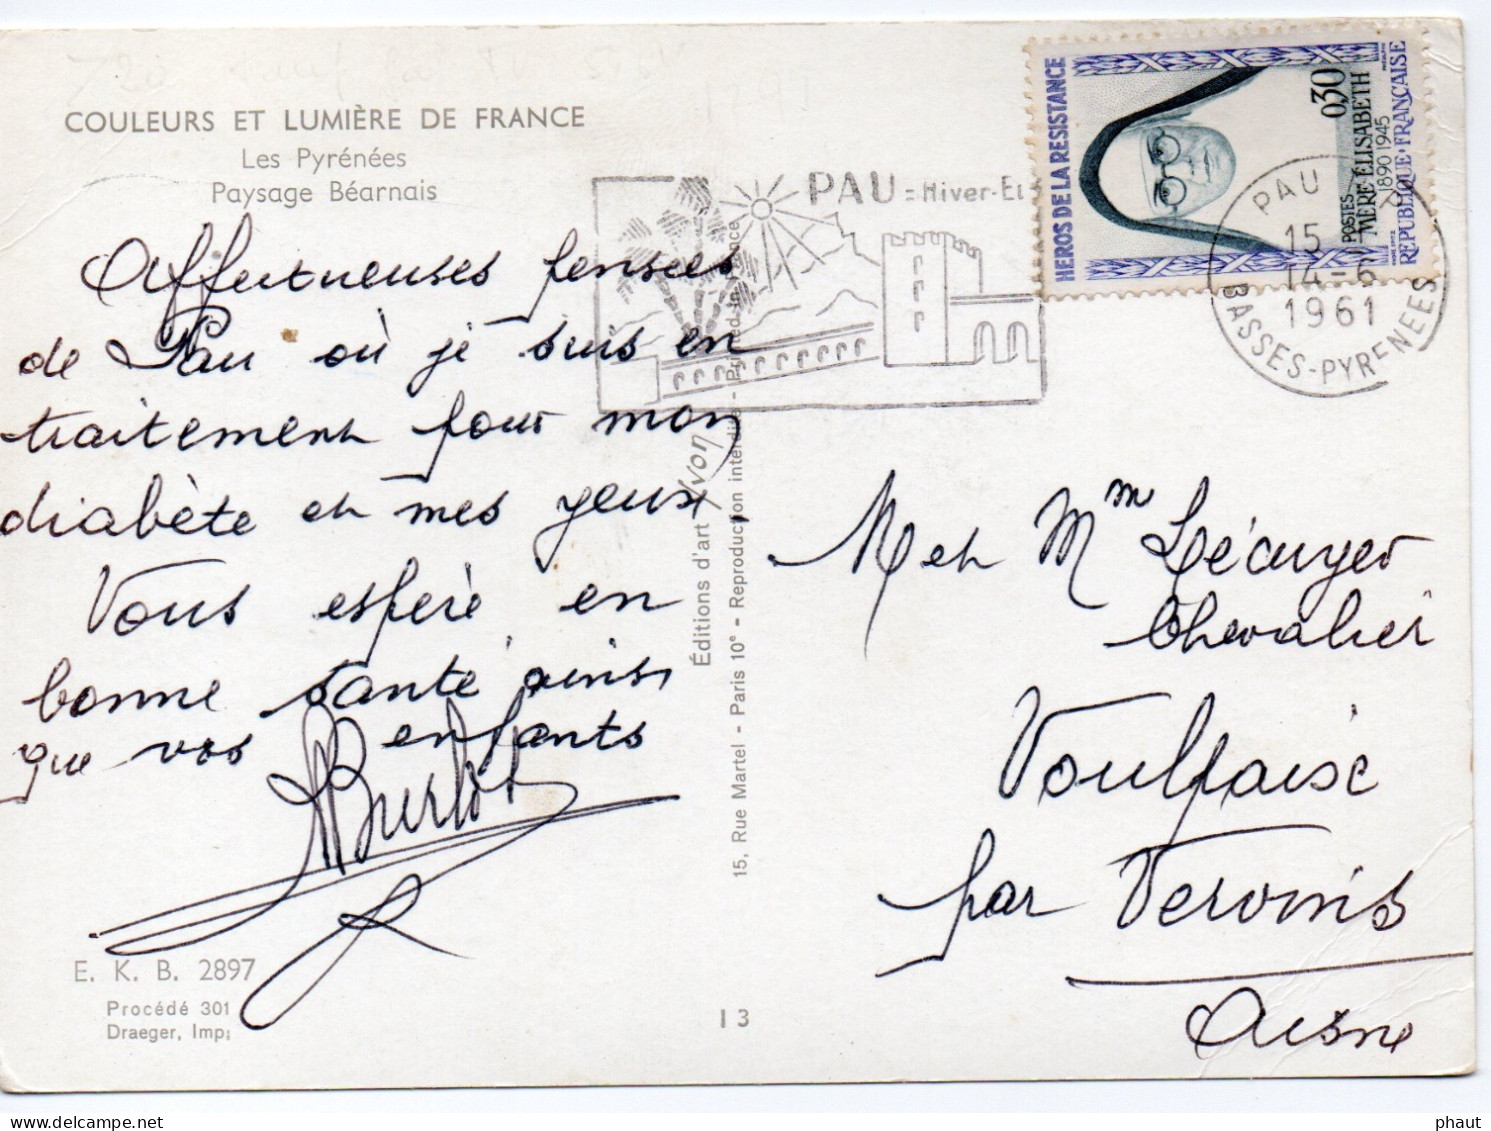 COULEURS ET LUMIÈRE DE FRANCE
Les Pyrénées
Paysage Béarnais
Affectueuses pensées
de Pau où je suis en
traitement pour mon
diabète et mes yeux,
Vous espère en
bonne santé ainsi
que vos enfants
Burlot
E. K. B. 2897
Procédé 301
Draeger, Imp;
Éditions d'art Yvon
15, Rue Martel - Paris 10e - Reproduction interdite - Printed in France
I 3
PAU = Hiver-Et
HEROS DE LA RESISTANCE
0,30
POSTES
MÈRE ÉLISABETH
1890 1945
REPUBLIQUE·FRANÇAISE
PAU
15
14-6
1961
BASSES-PYRENEES
M et Mm
Chevalier
Voulpaix
par Vervins
Aisne
phaut